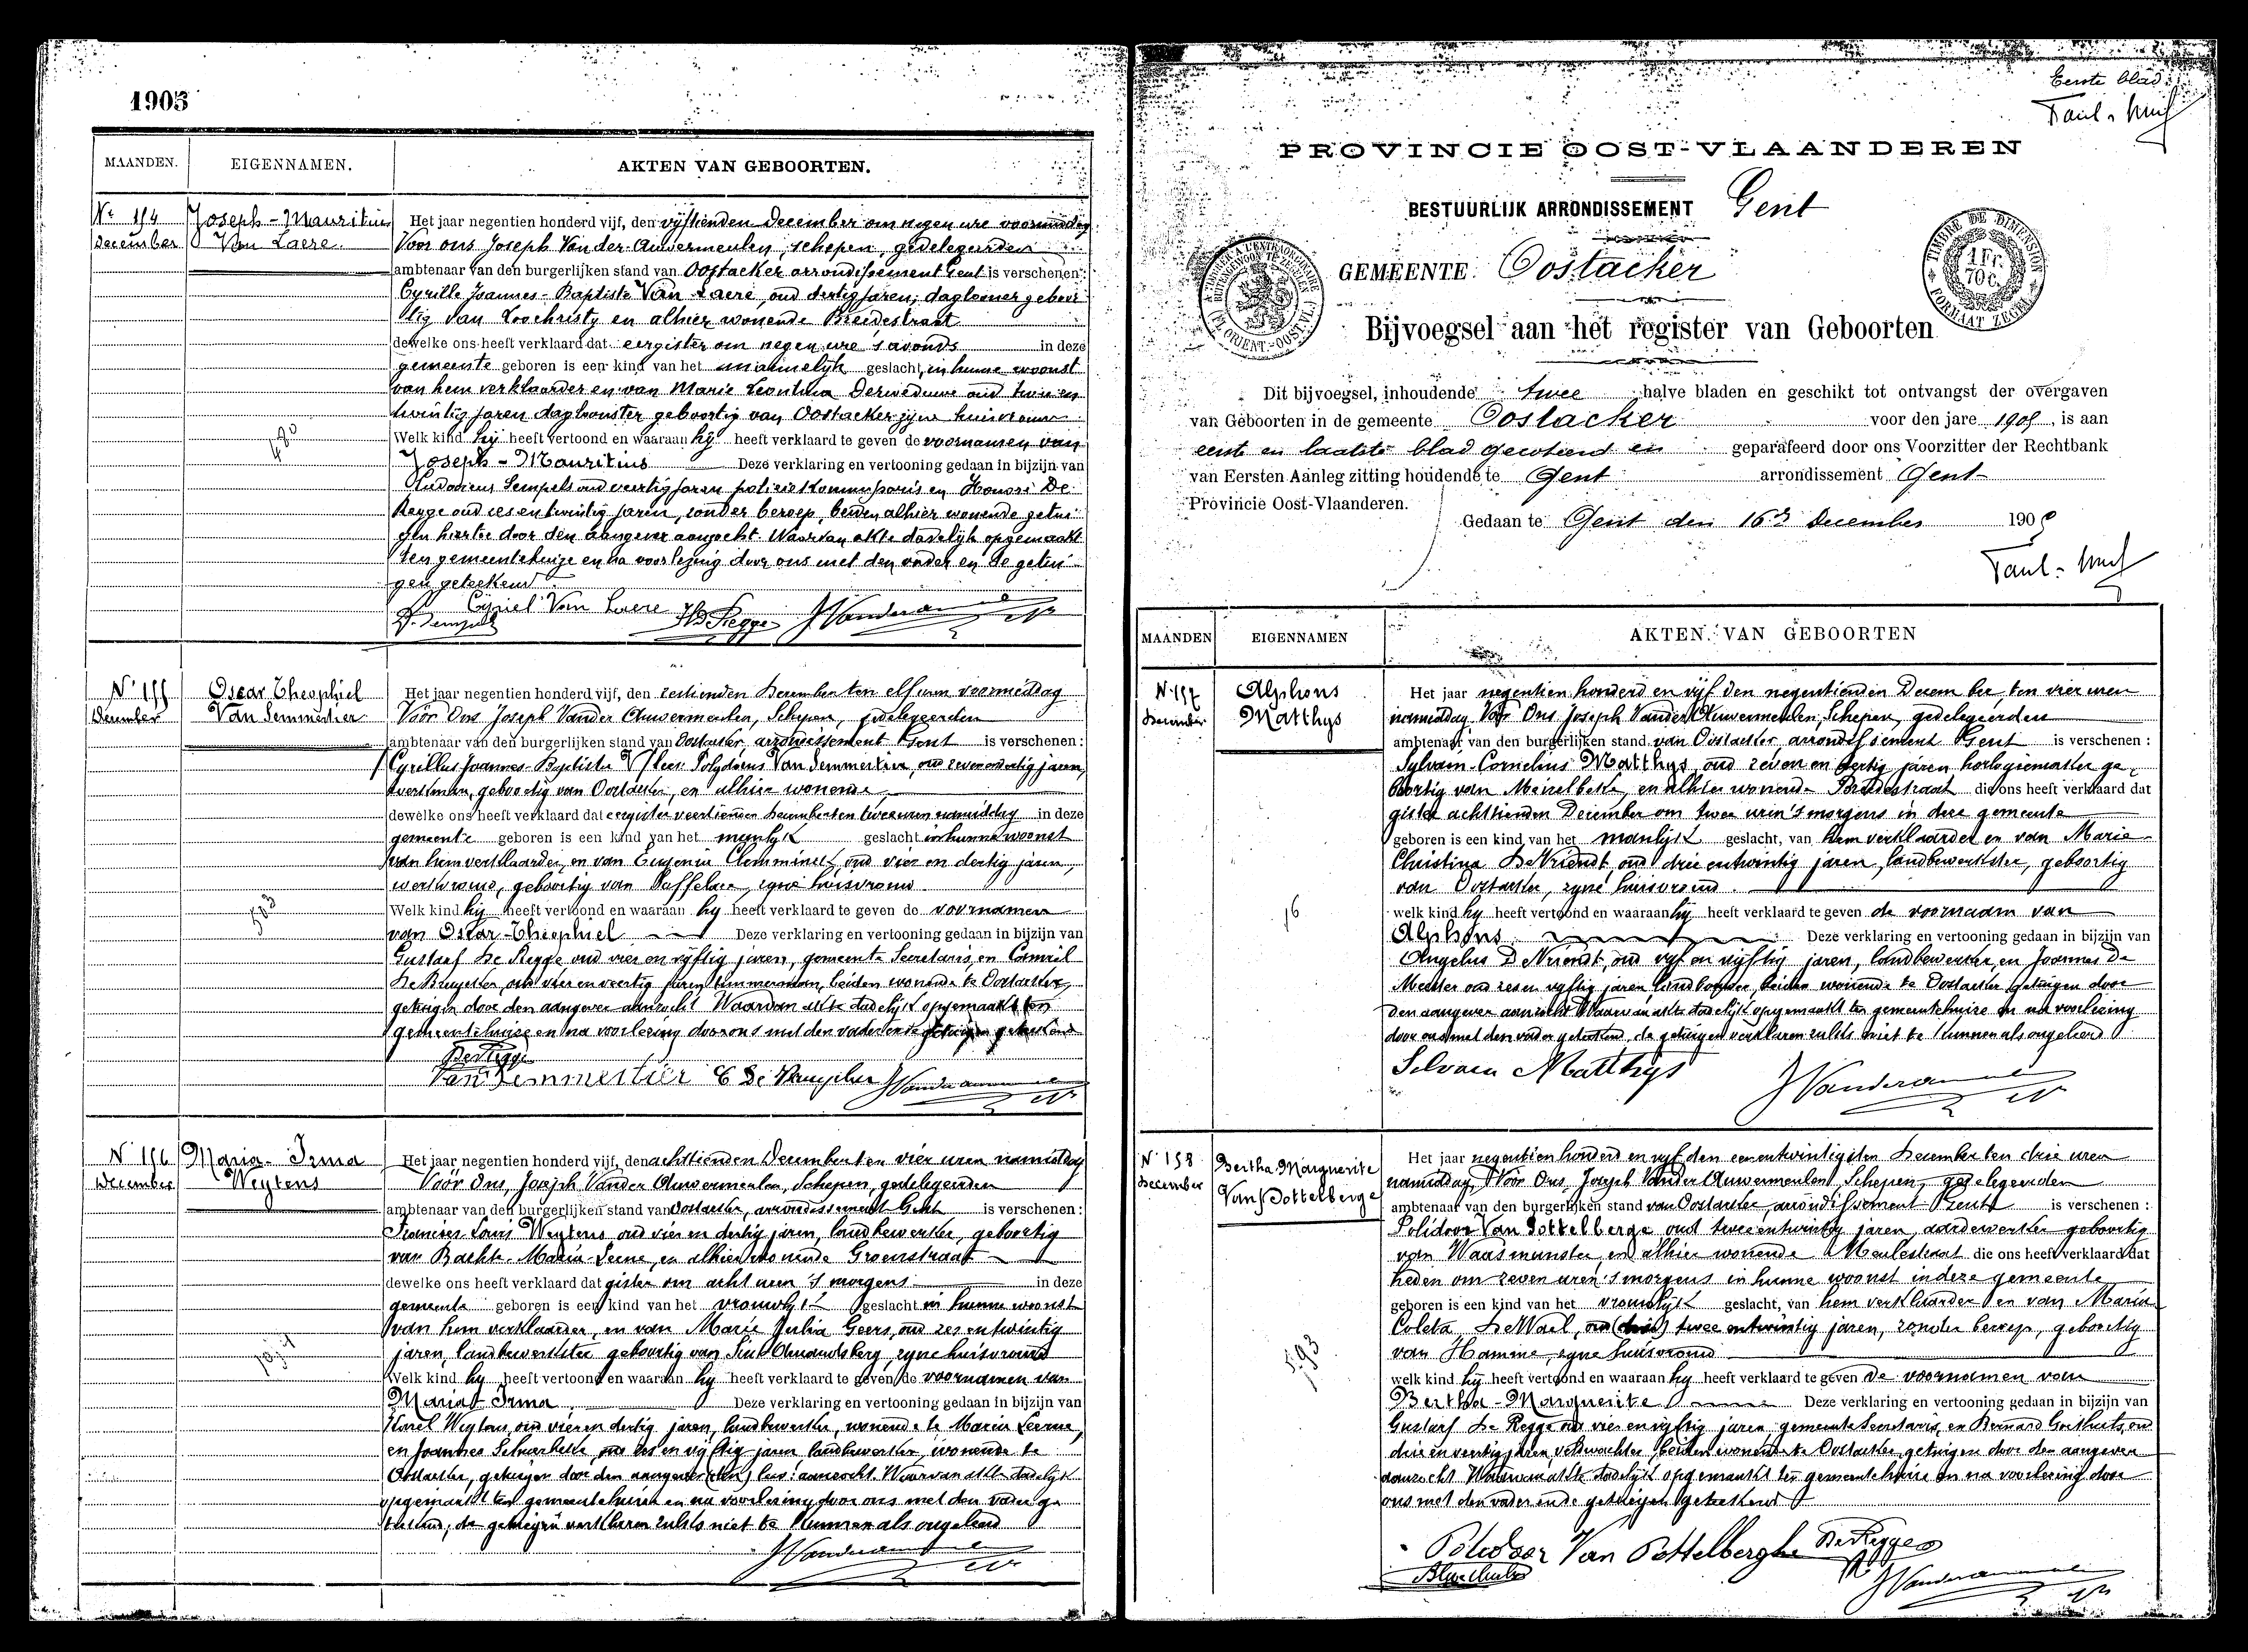 1905
MAANDEN. EIGENNAMEN. AKTEN VAN GEBOORTEN.
Nr 154 December
Joseph-Mauritius Van Laere
Het jaar negentien honderd vijf, den vijftienden December om negen ure voormiddag
Voor ons Joseph Van der Auwermeulen, schepen, gedelegeerden
ambtenaar van den burgerlijken stand van Oostacker arrondissement Gent is verschenen:
Cyrille Joannes-Baptiste Van Laere, oud dertig jaren, daglooner geboor
tig van Loochristy en alhier wonende Breedestraat
dewelke ons heeft verklaard dat eergister om negen ure s'avonds in deze
gemeente geboren is een kind van het mannelijk geslacht, in hunne woonst
van hem verklaarder en van Marie Leontina Derweduwe oud twee en
twintig jaren daglounster geboortig van Oostacker zijne huisvrouw
Welk kind hij heeft vertoond en waaraan hij heeft verklaard te geven de voornamen van
Joseph-Mauritius Deze verklaring en vertooning gedaan in bijzijn van
Ludovicus Sempels oud veertig jaren policiekommissaris en Honoré De
Regge oud zes en twintig jaren, zonder beroep, beiden alhier wonende getui
gen hiertoe door den aangever aanzocht. Waarvan akte dadelijk opgemaakt
ten gemeentehuize en na voorlezing door ons met den vader en de getui
gen geteekend
Cyriel Van Laere
N° 155 December
Oscar Theophiel Van Semmertier
Het jaar negentien honderd vijf, den zestienden December ten elf uren voormiddag
Voor Ons Joseph Vander Auwermeulen, Schepen, gedelegeerden
ambtenaar van den burgerlijken stand van Oostacker arrondissement Gent is verschenen:
jaren,
werkman, geboortig van Oostacker, en alhier wonende
dewelke ons heeft verklaard dat eergister veertienden December ten twee uren namiddag in deze
gemeente geboren is een kind van het manlijk geslacht in hunne woonst
van hem verklaarder, en van Eugenia oud vier en dertig jaren,
geboortig van zyne huisvrouw
Welk kind hij heeft vertoond en waaraan hy heeft verklaard te geven de voornamen
van Oscar-Theophiel Deze verklaring en vertooning gedaan in bijzijn van
Gustaaf De Regge oud vier en vyftig jaren, gemeente Secretaris, en Camiel
De Bruycker, oud vier en veertig jaren timmerman, beiden wonende te Oostacker,
getuigen door den aangever aanzocht Waarvan akte dadelijk opgemaakt ten
gemeentehuize en na voorlezing door ons met den vader en de getuigen geteekend
De Regge
Van Semmertier
N° 156 December
Maria-Irma Weytens
Het jaar negentien honderd vijf, den achttienden December ten vier uren namiddag
Voor Ons, Joseph Vander Auwermeulen, Schepen, gedelegeerden
ambtenaar van den burgerlijken stand van Oostacker, arrondissement Gent is verschenen:
Francies Louis Weytens, oud vier en dertig jaren, landbewerker, geboortig
van Bachte-Maria-Leerne, en alhier wonende Groenstraat
dewelke ons heeft verklaard dat gister om acht uren 's morgens in deze
gemeente geboren is een kind van het vrouwlyk geslacht in hunne woonst
van hem verklaarder, en van Marie Julia Geers, oud zes en twintig
jaren, landbewerkster geboortig van Sint Amandsberg, zyne huisvrouw
Welk kind hy heeft vertoond en waaraan hy heeft verklaard te geven de voornamen van
Maria-Irma Deze verklaring en vertooning gedaan in bijzijn van
Karel Weytens, oud vier en dertig jaren, landbewerker, wonende te Maria Leerne,
en Joannes oud zes en vijftig jaren landbewerker, wonende te
Oostacker, getuigen door den aangever aanzocht. Waarvan akte dadelijk
opgemaakt ten gemeentehuize en na voorlezing door ons met den vader ge
teekend, de getuigen verklaren zulks niet te kunnen als ongeleerd
Eerste blad
PROVINCIE OOST-VLAANDEREN
BESTUURLIJK ARRONDISSEMENT Gent
TIMBRE DE DIMENSION 1 Fr. 70 c. FORMAAT ZEGEL
GEMEENTE Oostacker
Bijvoegsel aan het register van Geboorten
Dit bijvoegsel, inhoudende twee halve bladen en geschikt tot ontvangst der overgaven
van Geboorten in de gemeente Oostacker voor den jare 1905, is aan
eerste en laatste blad gecoteerd en geparafeerd door ons Voorzitter der Rechtbank
van Eersten Aanleg zitting houdende te Gent arrondissement Gent
Provincie Oost-Vlaanderen.
Gedaan te Gent den 16 December 1905
MAANDEN EIGENNAMEN AKTEN VAN GEBOORTEN
N° 157 December
Alphons Matthys
Het jaar negentien honderd en vijf den negentienden December ten vier uren
namiddag Voor Ons Joseph Vander Auwermeulen, Schepen, gedelegeerden
ambtenaar van den burgerlijken stand van Oostacker, arrondissement Gent is verschenen:
Sylvain-Cornelius Matthys, oud zeven en dertig jaren horlogiemaker ge
boortig van Meirelbeke, en alhier wonende Breedestraat die ons heeft verklaard dat
gister achttienden December om twee uren 's morgens in deze gemeente
geboren is een kind van het manlyk geslacht, van hem verklaarder en van Marie
Christina De Vriendt, oud drie en twintig jaren, landbewerkster, geboortig
van Oostacker, zyne huisvrouw
welk kind hy heeft vertoond en waaraan hij heeft verklaard te geven de voornaam van
Alphons Deze verklaring en vertooning gedaan in bijzijn van
Angelus De Vriendt, oud vyf en vyftig jaren, landbewerker, en Joannes De
Meester oud zes en vyftig jaren landbouwer beiden wonende te Oostacker getuigen door
den aangever aanzocht Waarvan akte dadelijk opgemaakt ten gemeentehuize en na voorlezing
door ons met den vader geteekend, de getuigen verklaren zulks niet te kunnen als ongeleerd
Selvain Matthys
N° 158 December
Bertha Marguerite Van Pottelberge
Het jaar negentien honderd en vyf den een en twintigsten December ten drie uren
namiddag, Voor Ons, Joseph Vander Auwermeulen, Schepen, gedelegeerden
ambtenaar van den burgerlijken stand van Oostacker, arrondissement Gent is verschenen:
Polidoor Van Pottelberge oud twee en twintig jaren, aardewerker geboortig
van Waasmunster en alhier wonende Meulestraat die ons heeft verklaard dat
heden om zeven uren 's morgens in hunne woonst in deze gemeente
geboren is een kind van het vrouwlyk geslacht, van hem verklaarder en van Maria
Coleta De Wael, oud (drie) twee en twintig jaren, zonder beroep, geboortig
van Hamme, zyne huisvrouw
welk kind hij heeft vertoond en waaraan hy heeft verklaard te geven de voornamen van
Bertha-Marguerite Deze verklaring en vertooning gedaan in bijzijn van
Gustaaf De Regge oud vier en vyftig jaren gemeente Secretaris, en Bernard oud
drie en veertig jaren, veldwachter beiden wonende te Oostacker, getuigen door den aangever
aanzocht Waarvan akte dadelijk opgemaakt ten gemeentehuize en na voorlezing door
ons met den vader en de getuigen geteekend
Polidoor Van Pottelberghe De Regge